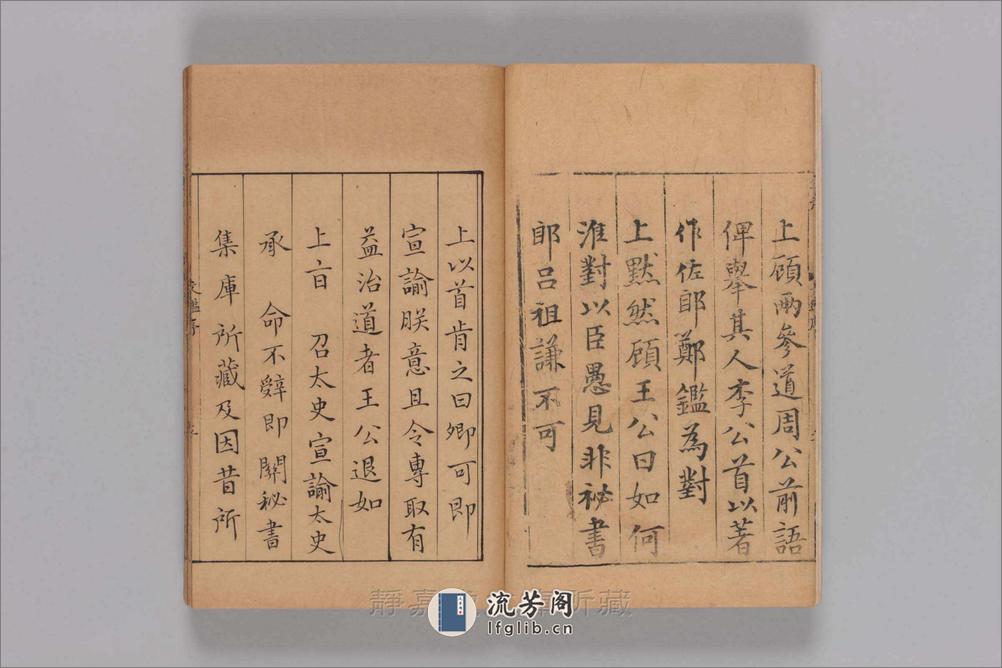 上顧兩參道周公前語
俾舉其人李公首以著
作佐郎鄭鑑為對
上默然顧王公曰如何
淮對以臣愚見非祕書
郎呂祖謙不可
上以首肯之曰卿可即
宣諭朕意且令專取有
益治道者王公退如
上㫖　召太史宣諭太史
承　命不辤即關秘書
集庫所藏及因昔所
文鑑序
靜嘉 所藏
流芳阁
lfglib.cn